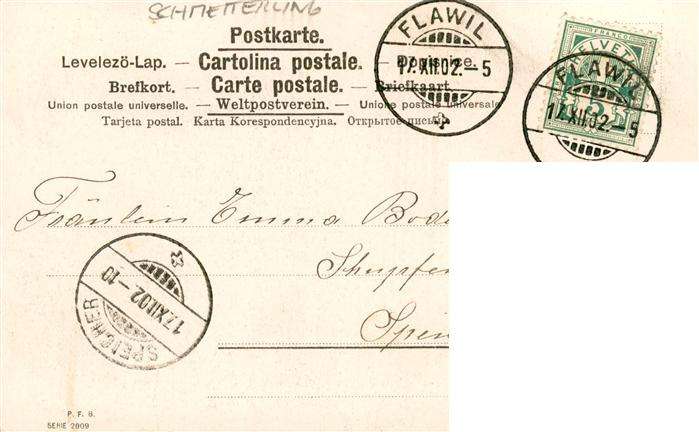 SCHMETTERLING
Postkarte.
Levelezö-Lap. — Cartolina postale. — Dopisnice.
Brefkort. — Carte postale. — Briefkaart.
Union postale universelle. — Weltpostverein. — Unione postale universale
Tarjeta postal. Karta Korespondencyjna. Открытое письмо
FLAWIL
17.XII.02.-5
FRANCO
HELVETIA
FLAWIL
17.XII.02.-5
Fräulein Emma Bode
Speicher
17.XII.02.-10
SPEICHER
P. F. B.
SERIE 2009